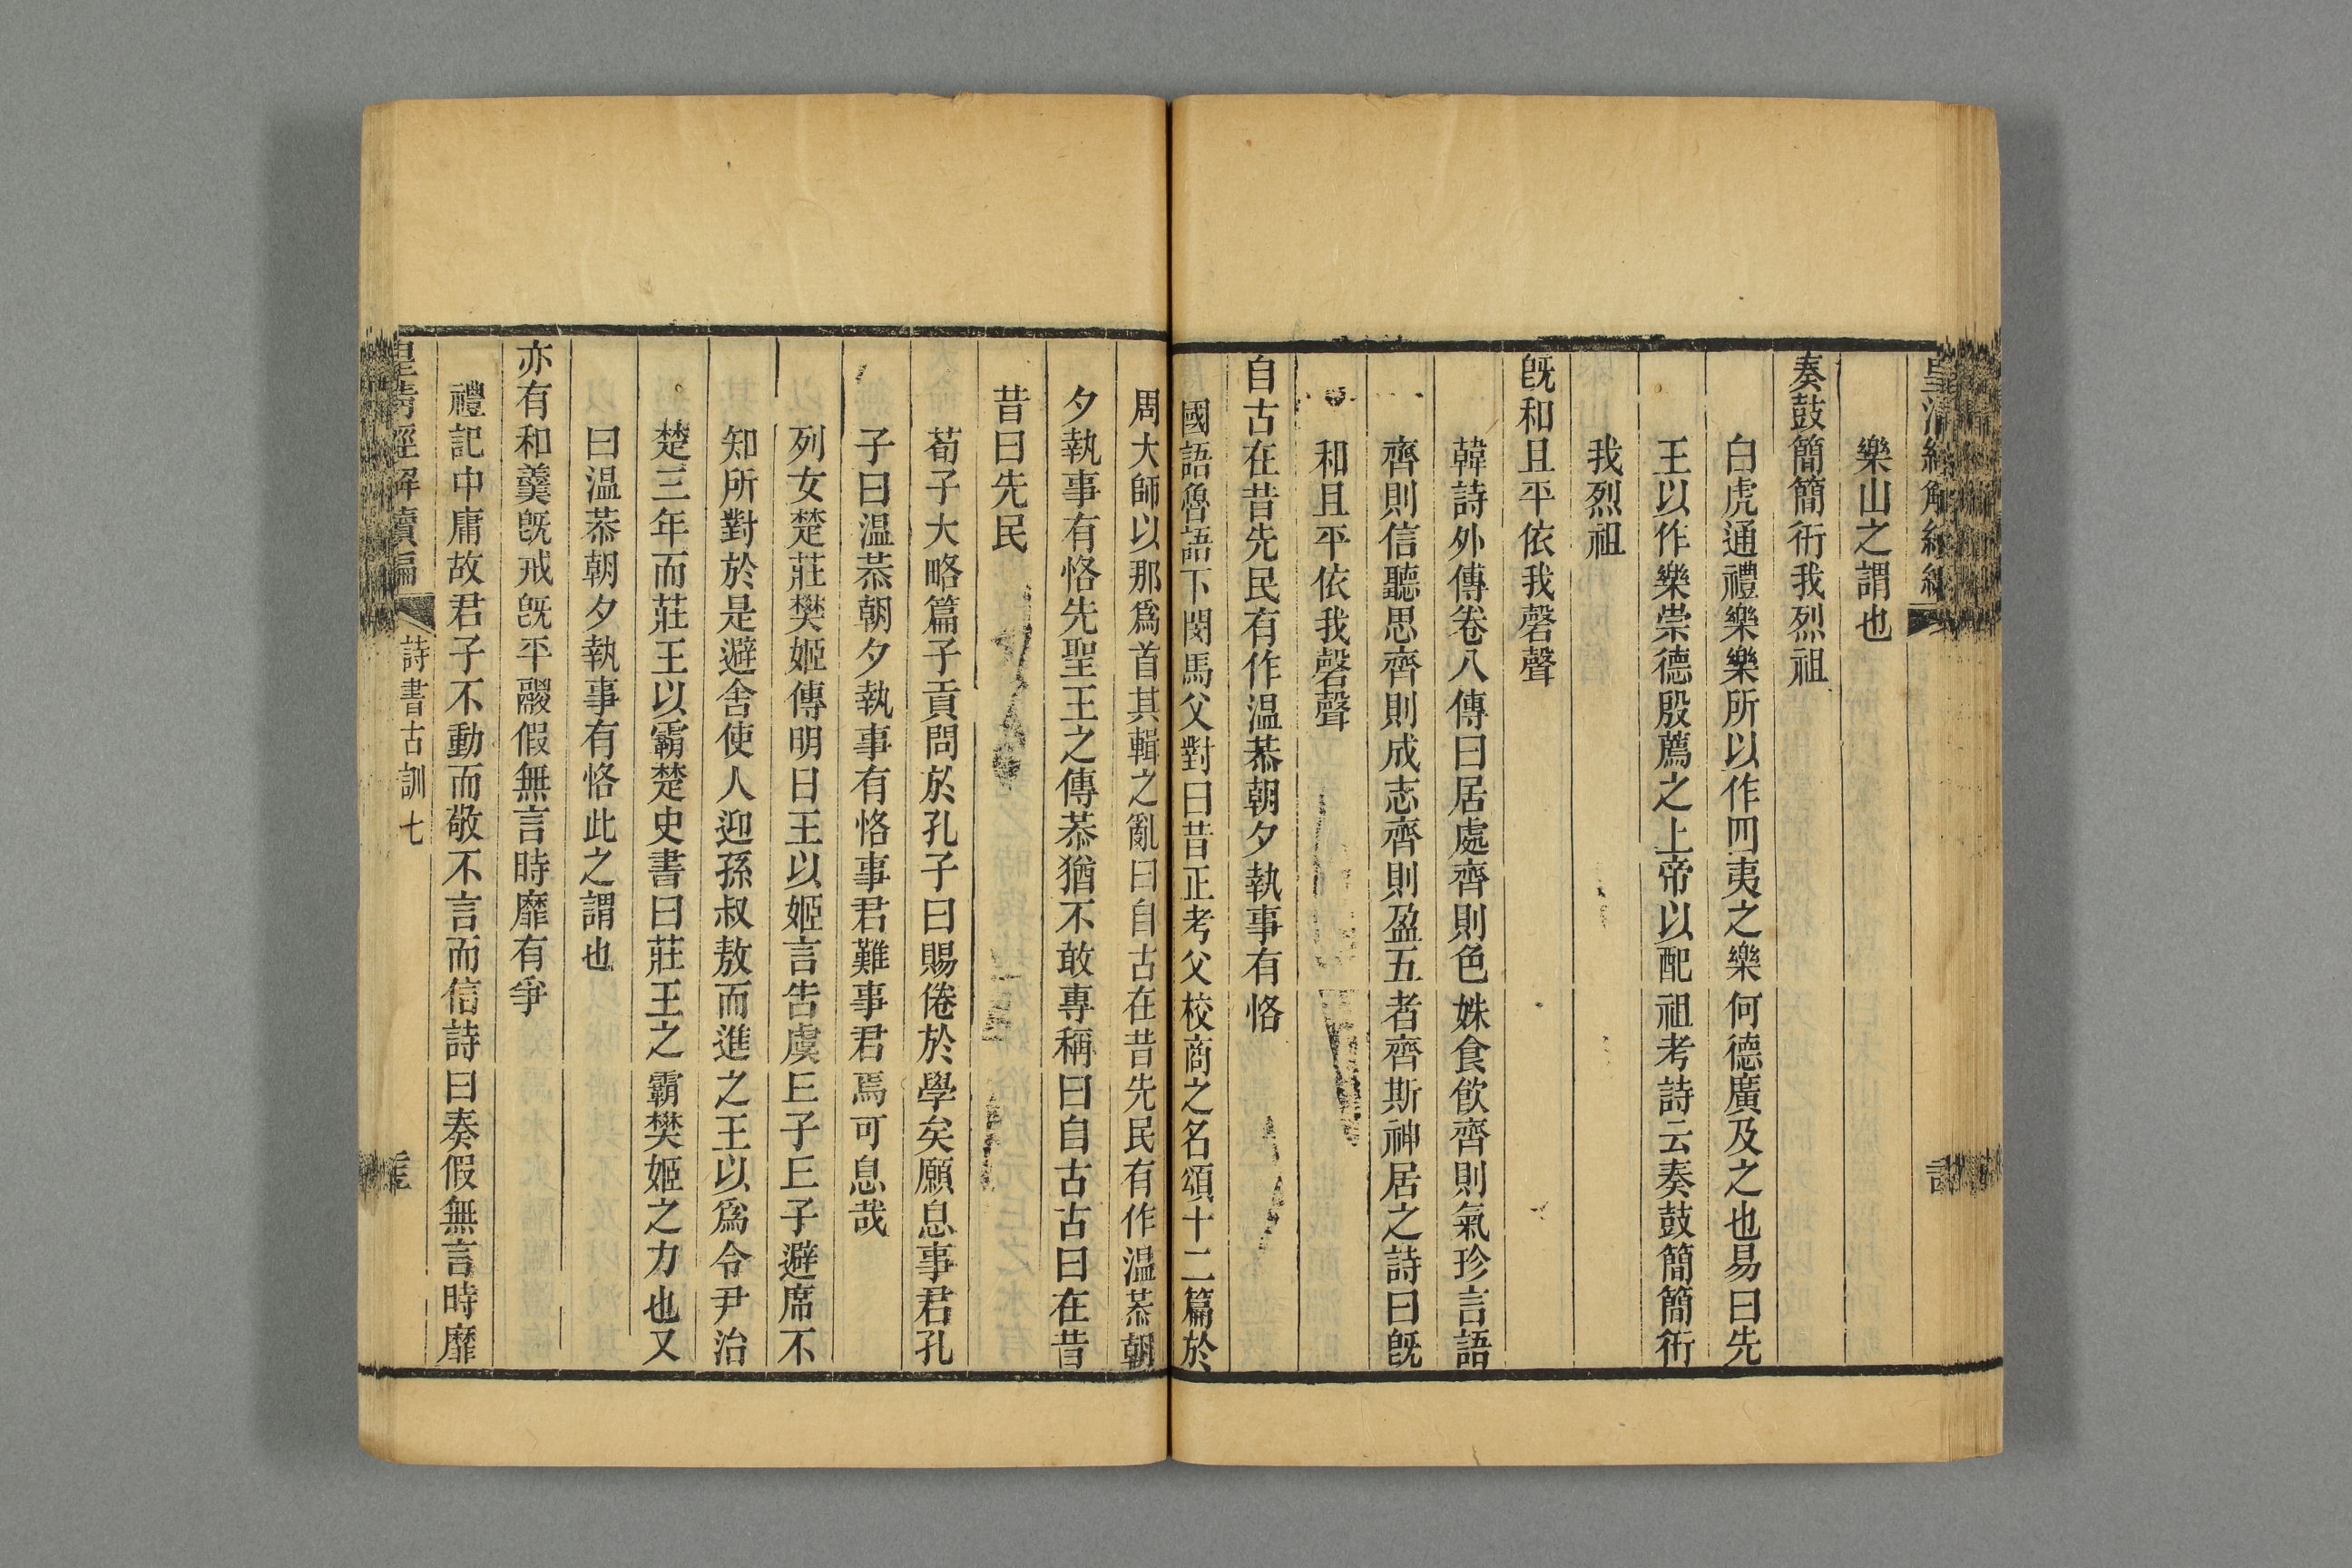 樂山之謂也
奏鼓簡簡衎我烈祖
白虎通禮樂樂所以作四夷之樂何德廣及之也易曰先
王以作樂崇德殷薦之上帝以配祖考詩云奏鼓簡簡衎
我烈祖
旣和且平依我磬聲
韓詩外傳卷八傳曰居處齊則色姝食飮齊則氣珍言語
齊則信聽思齊則成志齊則盈五者齊斯神居之詩曰旣
和且平依我磬聲
自古在昔先民有作温恭朝夕執事有恪
國語魯語下閔馬父對曰昔正考父校商之名頌十二篇於
周大師以那爲首其輯之亂曰自古在昔先民有作温恭朝
夕執事有恪先聖王之傳恭猶不敢專稱曰自古古曰在昔
昔曰先民
荀子大略篇子貢問於孔子曰賜倦於學矣願息事君孔
子曰温恭朝夕執事有恪事君難事君焉可息哉
列女楚莊樊姬傳明日王以姬言告虞𠀍子𠀍子避席不
知所對於是避舍使人迎孫叔敖而進之王以爲令尹治
楚三年而莊王以霸楚史書曰莊王之霸樊姬之力也又
曰温恭朝夕執事有恪此之謂也
亦有和羹旣戒旣平鬷假無言時靡有爭
禮記中庸故君子不動而敬不言而信詩曰奏假無言時靡
皇清經解續編 詩書古訓七